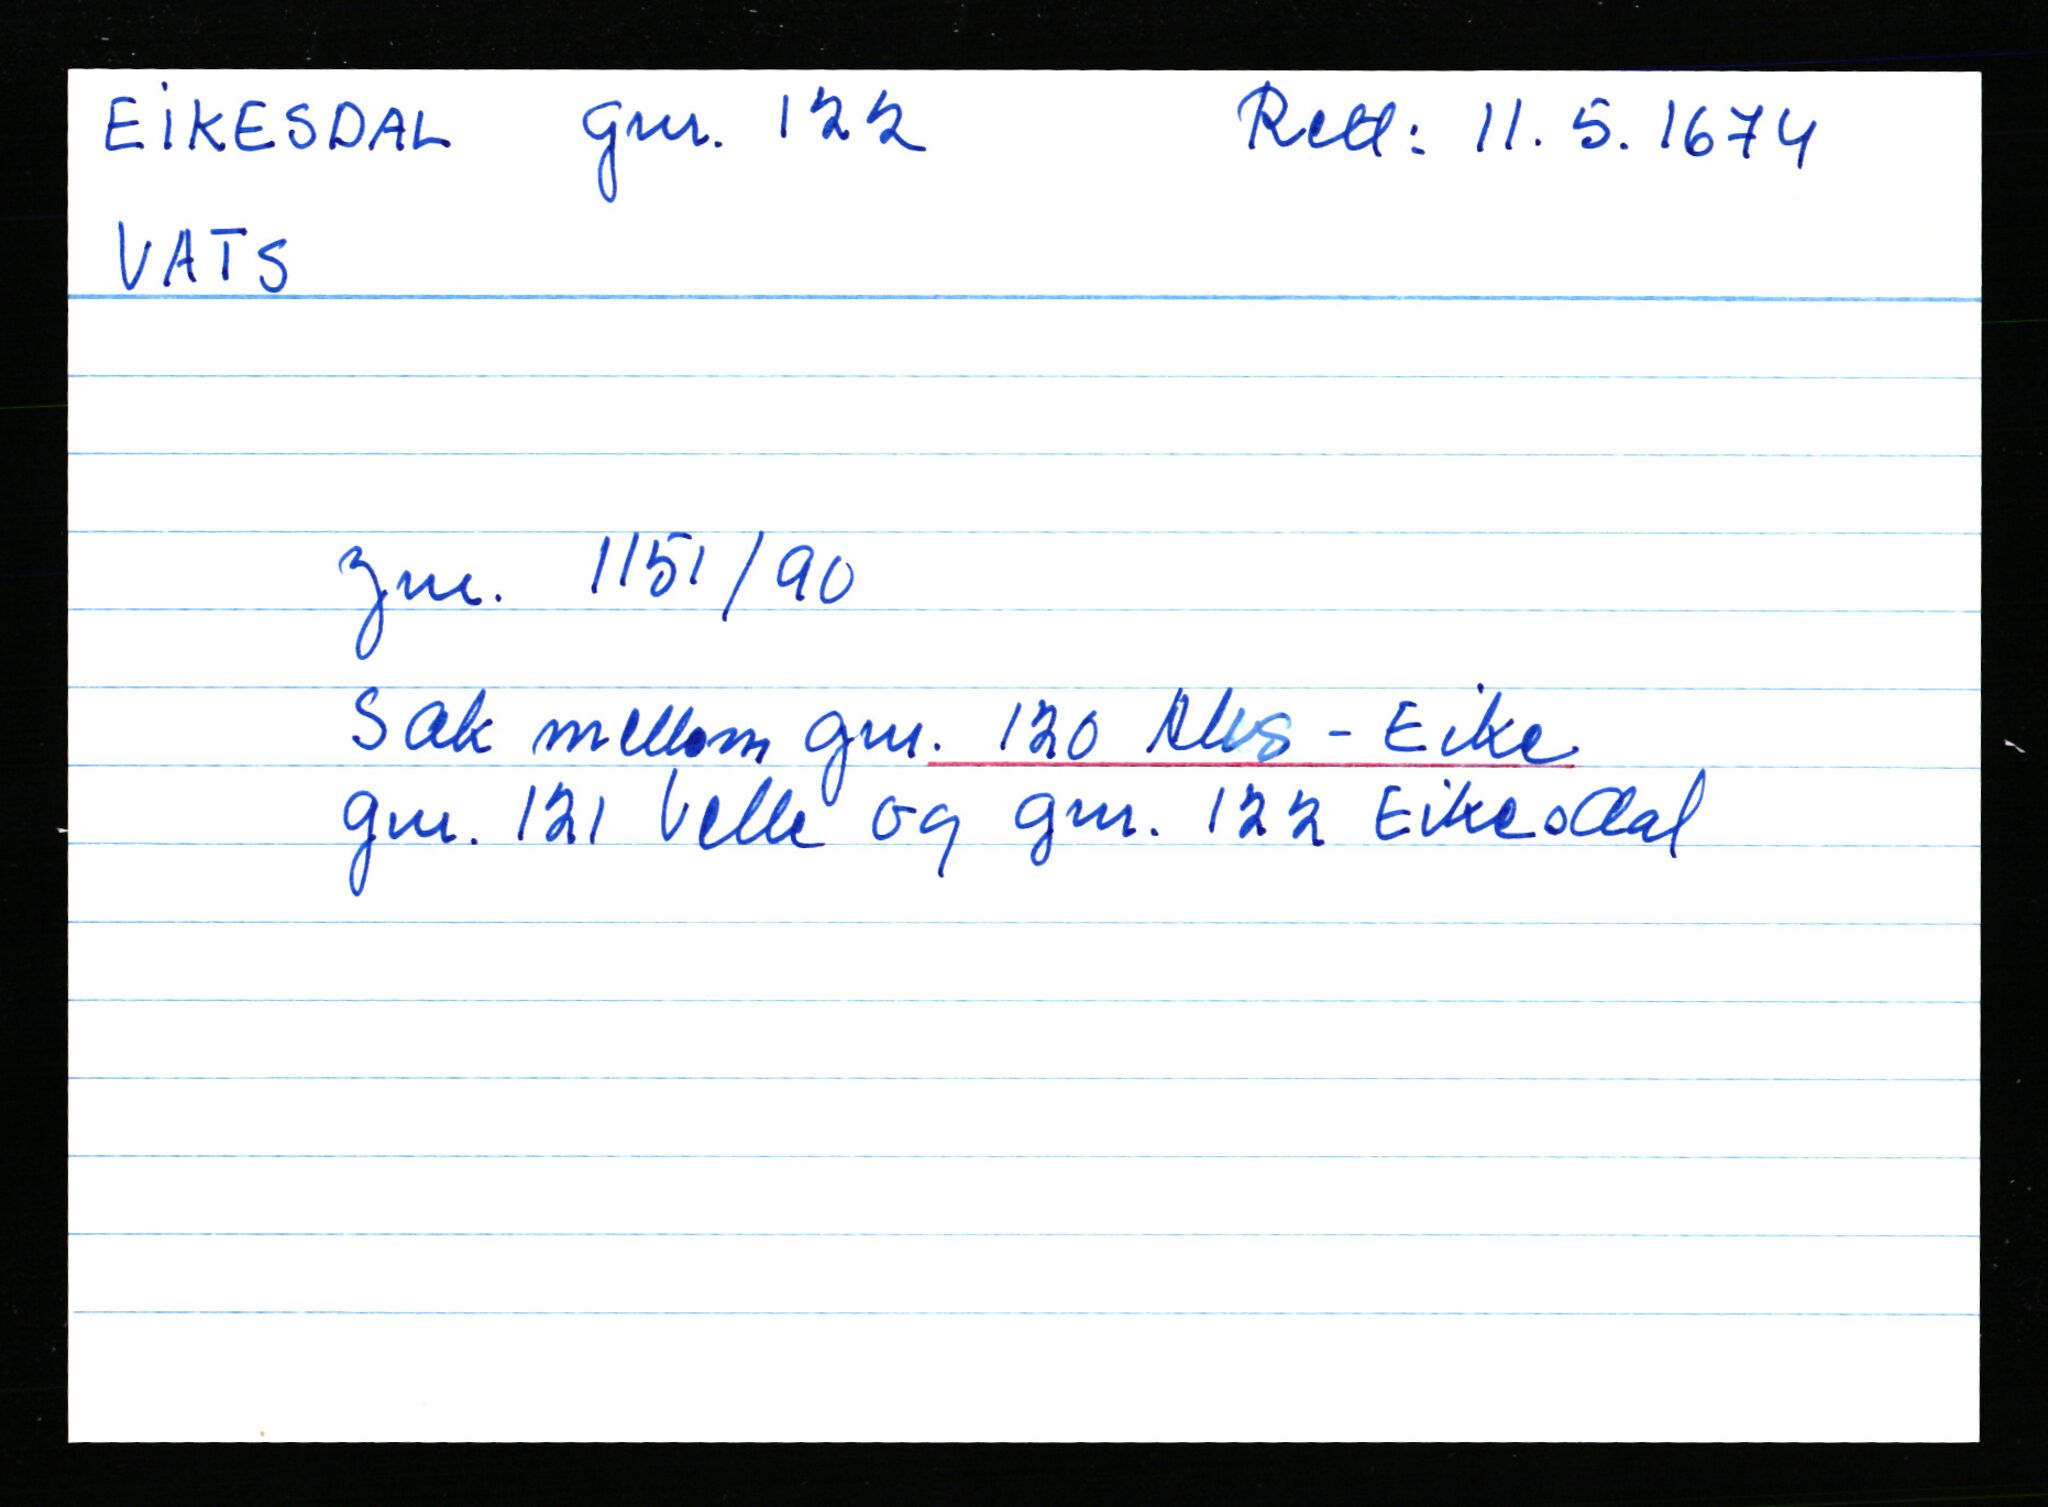 EIKESDAL gnr. 122 Rett: 11.5.1674
VATS
Jnr. 1151/90
Sak mellom gnr. 120 - Eike
gnr. 121 Velle og gnr. 122 Eikesdal